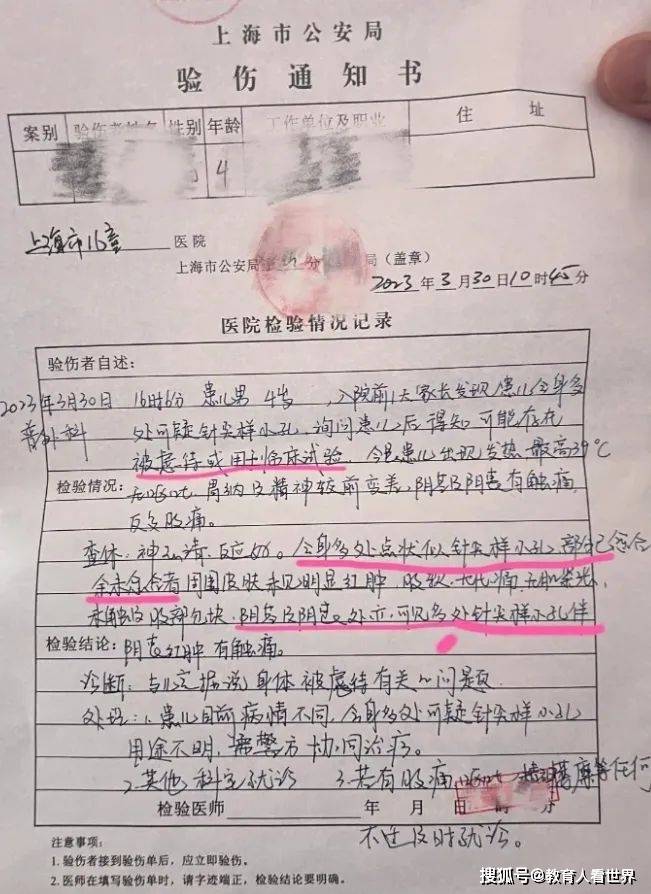 上海市公安局
验伤通知书
案别 验伤者姓名 性别 年龄 工作单位及职业 住 址
4
上海市 医院
上海市公安局 分 局(盖章)
2023年3月30日10时45分
医院检验情况记录
验伤者自述:
2023年3月30日 16时6分 患儿男 4岁 ,入院前1天家长发现患儿全身多
普外科 处可疑针尖样小孔,询问患儿后得知可能存在
被虐待或用于临床试验。今晨患儿出现发热,最高39℃
检验情况: 无呕吐,胃纳及精神较前变差,阴茎及阴囊有触痛,
反复腹痛。
查体:神志清,反应好。全身多处点状似针尖样小孔,部分已愈合
余未愈合者周围皮肤未见明显红肿 腹软,无压痛,无肌紧张,
未触及腹部包块,阴茎及阴囊处亦可见多处针尖样小孔伴
检验结论: 阴囊红肿有触痛。
诊断:与 据说身体被虐待有关的问题
处理:1.患儿目前病情不同,全身多处可疑针尖样小孔
用途不明,需警方协同治疗。
2.其他科室就诊 3.若有腹痛 呕吐 等任何
检验医师 年 月 日 时 分
不适及时就诊。
注意事项:
1. 验伤者接到验伤单后,应立即验伤。
2. 医师在填写验伤单时,请字迹端正,检验结论要明确。
搜狐号@教育人看世界